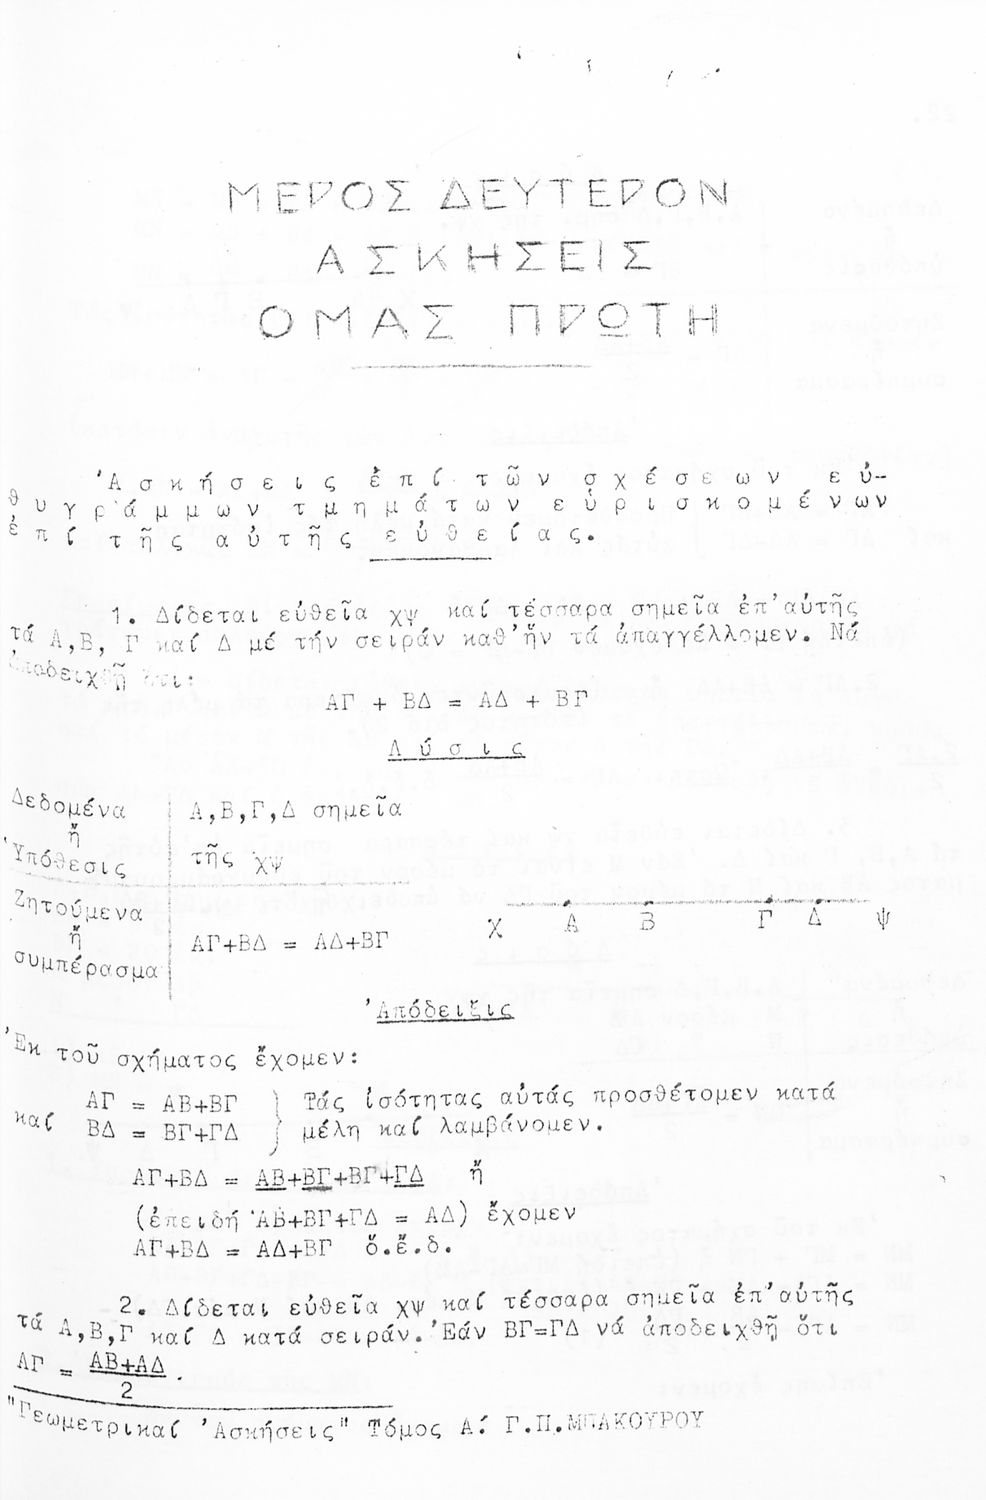 ΜΕΡΟΣ ΔΕΥΤΕΡΟΝ
ΑΣΚΗΣΕΙΣ
ΟΜΑΣ ΠΡΩΤΗ
Ἀσκήσεις ἐπί τῶν σχέσεων εὐ-
θυγράμμων τμημάτων εὑρισκομένων
ἐπί τῆς αὐτῆς εὐθείας.
1. Δίδεται εὐθεῖα χψ καί τέσσαρα σημεῖα ἐπ' αὐτῆς
τά Α,Β, Γ καί Δ μέ τήν σειράν καθ' ἥν τά ἀπαγγέλλομεν. Νά
ἀποδειχθῆ ὅτι:
ΑΓ + ΒΔ = ΑΔ + ΒΓ
Λύσις
Δεδομένα
ἤ
Ὑπόθεσις
Α,Β,Γ,Δ σημεῖα
τῆς χψ
Ζητούμενα
ἤ
συμπέρασμα
ΑΓ+ΒΔ = ΑΔ+ΒΓ
χ Α Β Γ Δ ψ
Ἀπόδειξις
Ἐκ τοῦ σχήματος ἔχομεν:
ΑΓ = ΑΒ+ΒΓ } Τάς ἰσότητας αὐτάς προσθέτομεν κατά
καί ΒΔ = ΒΓ+ΓΔ } μέλη καί λαμβάνομεν.
ΑΓ+ΒΔ = ΑΒ+ΒΓ+ΒΓ+ΓΔ ἤ
(ἐπειδή ΑΒ+ΒΓ+ΓΔ = ΑΔ) ἔχομεν
ΑΓ+ΒΔ = ΑΔ+ΒΓ ὅ.ἔ.δ.
2. Δίδεται εὐθεῖα χψ καί τέσσαρα σημεῖα ἐπ' αὐτῆς
τά Α,Β,Γ καί Δ κατά σειράν. Ἐάν ΒΓ=ΓΔ νά ἀποδειχθῆ ὅτι
ΑΓ = ΑΒ+ΑΔ
2 .
"Γεωμετρικαί Ἀσκήσεις" Τόμος Α΄ Γ.Π.ΜΠΑΚΟΥΡΟΥ